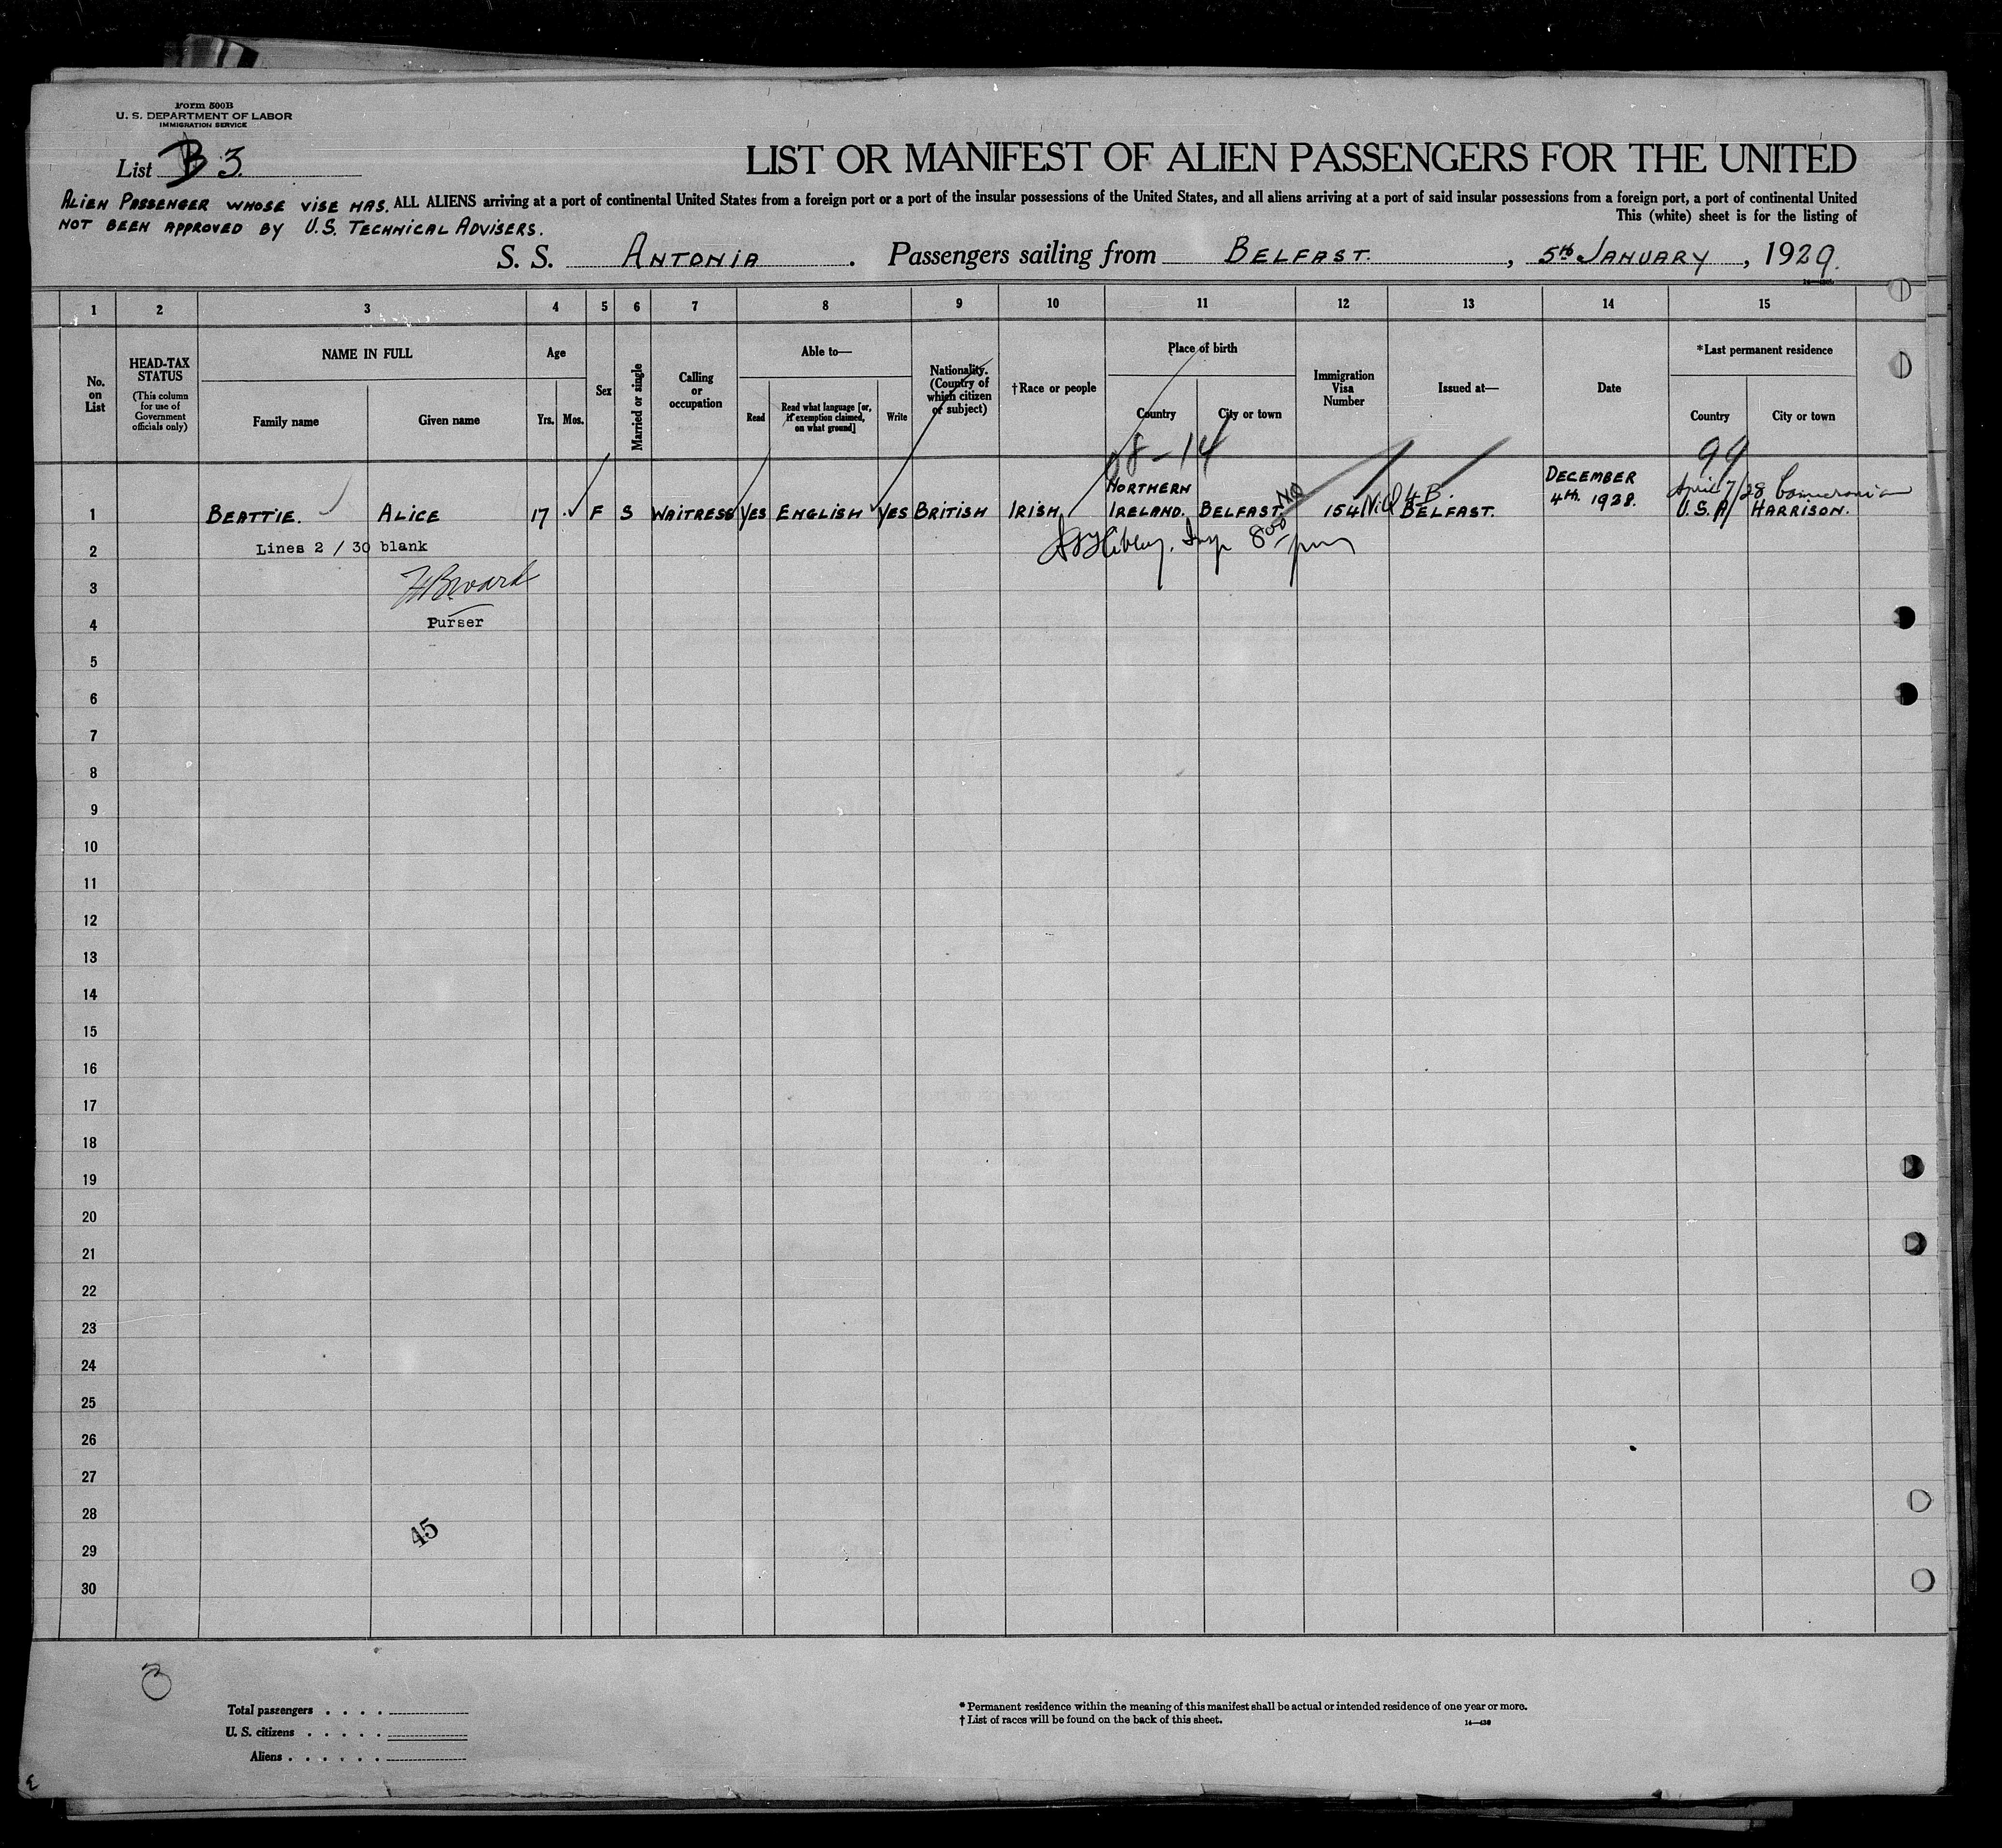 Form 500B
U. S. DEPARTMENT OF LABOR
IMMIGRATION SERVICE
List B 3.
LIST OR MANIFEST OF ALIEN PASSENGERS FOR THE UNITED
ALIEN PASSENGER WHOSE VISE HAS. ALL ALIENS arriving at a port of continental United States from a foreign port or a port of the insular possessions of the United States, and all aliens arriving at a port of said insular possessions from a foreign port, a port of continental United
This (white) sheet is for the listing of
NOT BEEN APPROVED BY U.S. TECHNICAL ADVISERS.
S. S. ANTONIA. Passengers sailing from BELFAST., 5th JANUARY, 1929.
1 2 3 4 5 6 7 8 9 10 11 12 13 14 15
No. on List
HEAD-TAX STATUS
(This column for use of Government officials only)
NAME IN FULL
Family name
Given name
Age
Yrs. Mos.
Sex
Married or single
Calling or occupation
Able to—
Read
Read what language [or, if exemption claimed, on what ground]
Write
Nationality. (Country of which citizen or subject)
†Race or people
Place of birth
Country
City or town
Immigration Visa Number
Issued at—
Date
*Last permanent residence
Country
City or town
8-14
99
1 BEATTIE. ALICE 17 F S WAITRESS YES ENGLISH YES BRITISH IRISH. NORTHERN IRELAND. BELFAST. 154 4B. BELFAST. DECEMBER 4th. 1928. April 7/28 U.S.A HARRISON.
2 Lines 2 / 30 blank
3
4 Purser
5
6
7
8
9
10
11
12
13
14
15
16
17
18
19
20
21
22
23
24
25
26
27
28
45
29
30
3
Total passengers
U. S. citizens
Aliens
* Permanent residence within the meaning of this manifest shall be actual or intended residence of one year or more.
† List of races will be found on the back of this sheet.